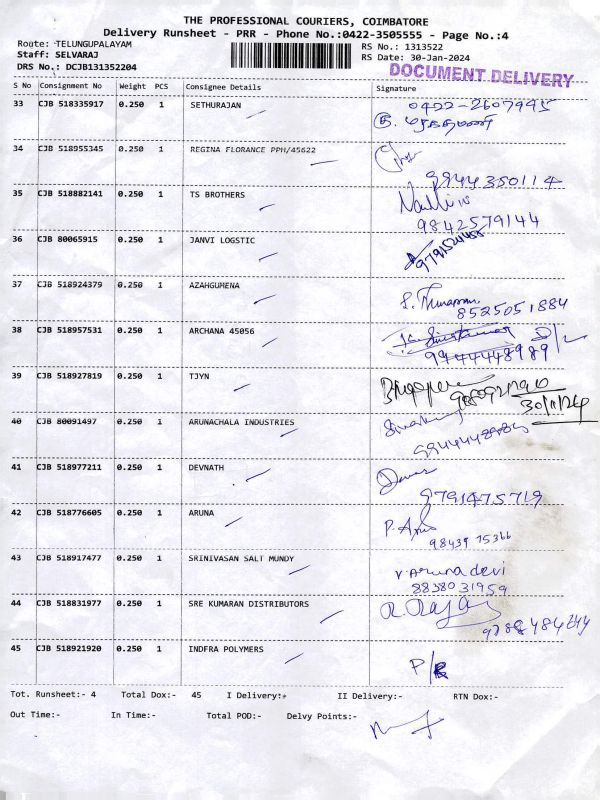 THE PROFESSIONAL COURIERS, COIMBATORE
Delivery Runsheet - PRR - Phone No.:0422-3505555 - Page No.:4
Route: TELUNGUPALAYAM
RS No.: 1313522
Staff: SELVARAJ
RS Date: 30-Jan-2024
DRS No.: DCJB131352204
DOCUMENT DELIVERY
S No Consignment No Weight PCS Consignee Details Signature
33 CJB 518335917 0.250 1 SETHURAJAN 0422-2607445
34 CJB 518955345 0.250 1 REGINA FLORANCE PPH/45622
9944350114
35 CJB 518882141 0.250 1 TS BROTHERS
9842579144
36 CJB 80065915 0.250 1 JANVI LOGSTIC
37 CJB 518924379 0.250 1 AZAHGUMENA
8525051884
38 CJB 518957531 0.250 1 ARCHANA 45056
9944448989
39 CJB 518927819 0.250 1 TJYN
30/1/24
40 CJB 80091497 0.250 1 ARUNACHALA INDUSTRIES
41 CJB 518977211 0.250 1 DEVNATH
9791475719
42 CJB 518776605 0.250 1 ARUNA
98439 75366
43 CJB 518917477 0.250 1 SRINIVASAN SALT MUNDY V. Aruna devi
8838031959
44 CJB 518831977 0.250 1 SRE KUMARAN DISTRIBUTORS R. Rajan
45 CJB 518921920 0.250 1 INDFRA POLYMERS
Tot. Runsheet:- 4 Total Dox:- 45 I Delivery:- II Delivery:- RTN Dox:-
Out Time:- In Time:- Total POD:- Delvy Points:-